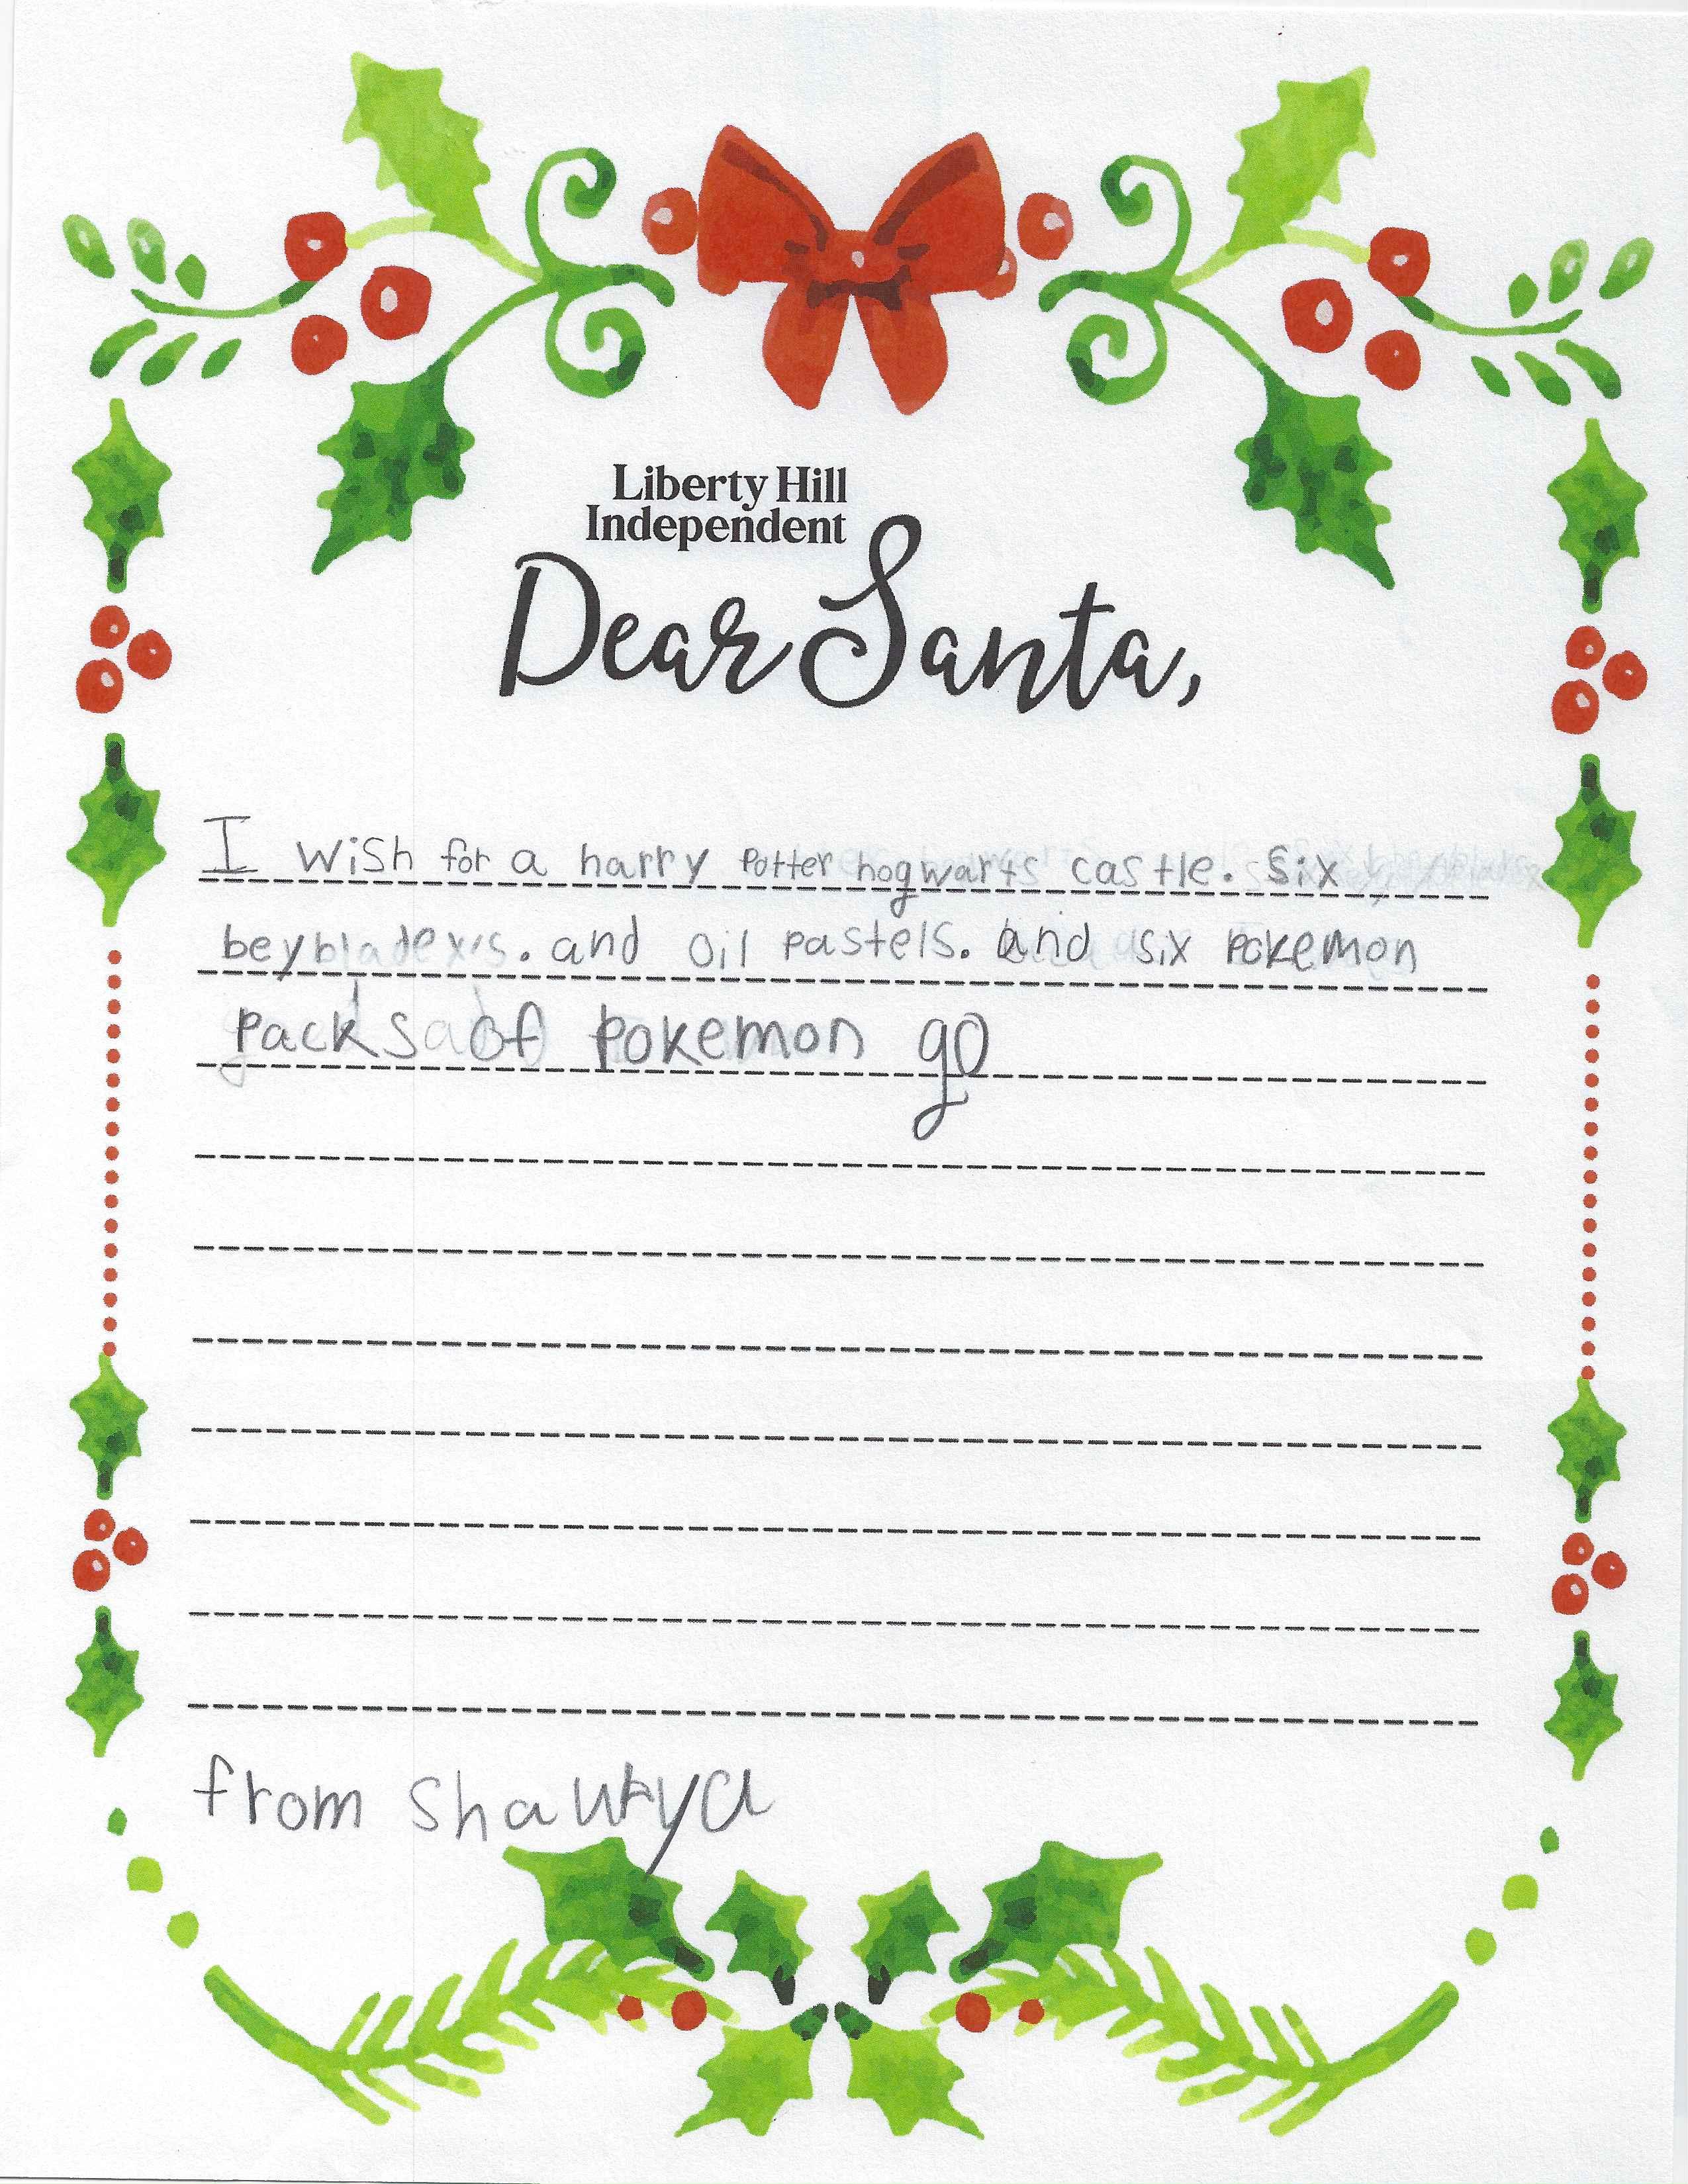 Liberty Hill
Independent
Dear Santa,
I wish for a harry Potter hogwarts castle. six
beybladexs. and oil pastels. and six Pokemon
Packs of Pokemon go
from Shaurya